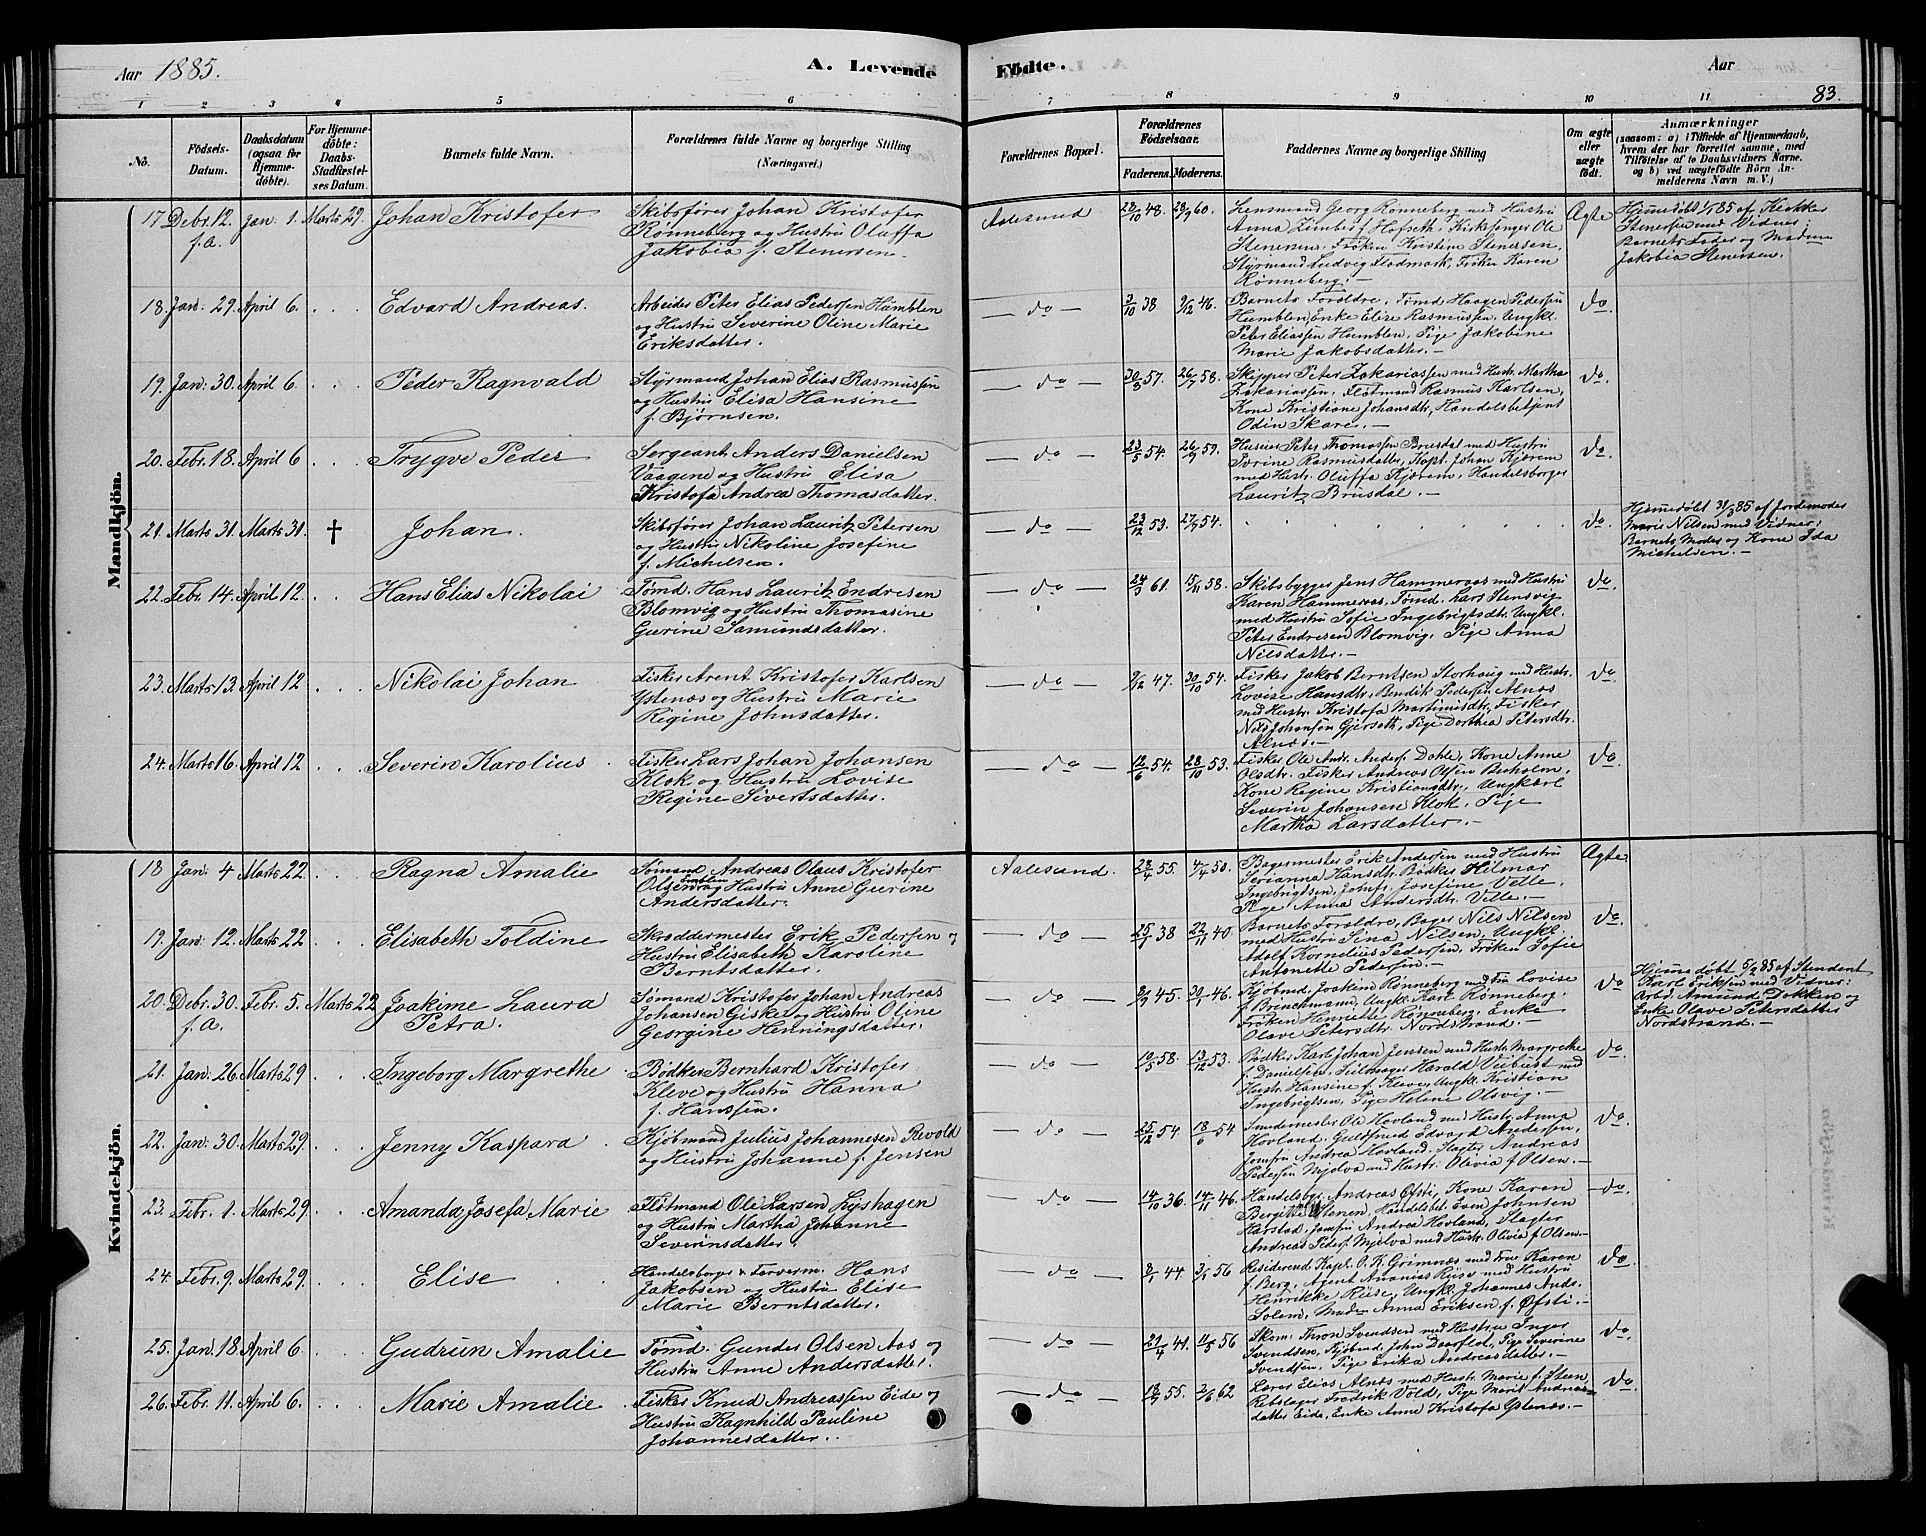 Aar 1885.
A. Levende Födte.
Aar
83.
1 2 3 4 5 6 7 8 9 10 11
No.
Födsels-Datum.
Daabsdatum (ogsaa for Hjemme-døbte).
For Hjemme-døbte: Daabs-Stadfæstel-ses Datum.
Barnets fulde Navn.
Forældrenes fulde Navne og borgerlige Stilling (Næringsvei.)
Forældrenes Bopæl.
Forældrenes Födselsaar.
Faderens. Moderens.
Faddernes Navne og borgerlige Stilling
Om ægte eller uægte födt.
Anmærkninger
(saasom: a) i Tilfælde af Hjemmedaab, hvem der har forrettet samme, med Tilføielse af to Daabsvidners Navne. og b) ved uægtefødte Börn An-melderens Navn m. V.)
Mandkjön.
17. Debr. 12. f.a. Jan: 1. Marts 29. Johan Kristofer
Skibsfører Johan Kristofer
Rønneberg og Hustru Oluffa
Jakobia f. Stenersen.
Aalesund 23/10 48. 28/9 60.
Lensmand Georg Rønneberg med Hustru
Anna Zimber f. Hofseth. Kirkesanger Ole
Stenersen. Frøken Kristine Stenersen,
Styrmand Ludvig Flodmark, Frøken Karen
Rønneberg.
Ægte
Hjemmedøbt 1/1 85 af Klokker
Stenersen med Vidner:
Barnets Fader og Madam
Jakobia Stenersen.
18. Jan. 29. April 6. Edvard Andreas.
Arbeider Peter Elias Pedersen Humblen
og Hustru Severine Oline Marie
Eriksdatter.
do 3/10 38 9/12 46.
Barnets Forældre, Tømd Haagen Pedersen
Humblen, Enke Elise Rasmussen, Ungkl.
Peter Eliassen Humblen, Pige Jakobine
Marie Jakobsdatter.
do.
19. Jan: 30. April 6. Peder Ragnvald
Styrmand Johan Elias Rasmussen
og Hustru Elisa Hansine
f. Bjørnsen.
do 30/8 57. 26/7 58.
Skipper Peter Zakariassen med Hustr. Martha
Zakariassen, Flotmand Rasmus Karlsen,
Kone Kristiane Johansdtr, Handelsbetjent
Odin Skare.
do.
20. Febr. 18. April 6 Trygve Peder
Sergeant Anders Danielsen
Vaagene og Hustru Elisa
Kristofa Andrea Thomasdatter.
do 23/5 54. 26/9 59.
Huseier Peter Thomassen Brusdal med Hustru
Ivrine Rasmusdatter, Kapt. Johan Kjørem
med Hustr. Oluffa Kjørem, Handelsborger
Lauritz Brusdal.
do.
21. Marts 31. Marts 31. † Johan.
Skibsfører Johan Lauritz Petersen
og Hustru Nikoline Josefine
f. Michelsen.
do 23/12 53. 27/9 54.
do.
Hjemmedøbt 31/3 85 af Jordemoder
Marie Nilsen med Vidner:
Barnets Moder og Kone Ida
Michelsen.
22. Febr. 14. April 12. Hans Elias Nikolai
Tømd. Hans Lauritz Endresen
Blomvig og Hustru Thomasine
Gurine Samundsdatter.
do 24/3 61. 15/11 58.
Skibsbygger Jens Hammeraas med Hustru
Karen Hammeraas, Tømd. Lars Stensvig
med Hustru Sofie Ingebrigtsdtr. Ungkl.
Peter Endresen Blomvig, Pige Anna
Nilsdatter.
do.
23. Marts 13. April 12 Nikolai Johan
Fisker Arent Kristofer Karlsen
Ystenæs og Hustru Marie
Regine Johnsdatter.
do 9/12 47. 30/10 54.
Fisker Jakob Berntsen Storhaug med Hustr.
Lovise Hansdtr. Bendik Pedersen Alnæs
med Hustr. Kristofa Martinusdtr, Fisker
Nils Johansen Gjerseth, Pige Dorthea Petersdtr.
Alnæs.
do.
24. Marts 16. April 12 Severin Karolius
Fisker Lars Johan Johansen
Klok og Hustru Lovise
Regine Sivertsdatter.
do 12/6 54. 28/10 53.
Fisker Ole Andr. Anders. Dahle, Kone Anne
Olsdtr. Fisker Andreas Olsen Buholm,
Kone Regine Kristiansdtr., Ungkarl
Severin Johansen Klok, Pige
Martha Larsdatter.
do.
Kvindekjön.
18 Jan: 4 Marts 22. Ragna Amalie
Sømand Andreas Olaus Kristofer
Olsen Emblem og Hustru Anne Gurine
Andersdatter.
Aalesund. 23/4 55. 4/4 50.
Bagermester Erik Andersen med Hustru
Serianna Hansdtr. Bødker Hilmar
Ingebrigtsen, Jomfr. Josefine Velle,
Pige Anna Andersdtr. Velle.
Ægte.
19. Jan: 12. Marts 22 Elisabeth Toldine
Skræddermester Erik Pedersen og
Hustru Elisabeth Karoline
Berntsdatter.
do 25/1 38 22/11 40.
Barnets Forældre, Bager Nils Nilsen
med Hustru Sina Nilsen, Ungkl.
Adolf Kornelius Pedersen, Frøken Sofie
Antonette Pedersen.
do
20. Debr. 30. f.a. Febr. 5. Marts 22 Joakime Laura
Petra.
Sømand Kristofer Johan Andreas
Johansen Giske og Hustru Oline
Georgine Henningsdatter.
do 8/9 45. 30/1 46.
Kjøbmd. Joakim Rønneberg med Fru Lovise
f. Brinchmann, Ungkl. Karl Rønneberg.
Frøken Henriette Rønneberg, Enke
Olave Petersdtr. Nordstrand.
do
Hjemmedøbt 5/2 85 af Student
Karl Eriksen med Vidner:
Arbd. Amund Dokken og
Enke Olave Petersdatter
Nordstrand.
21. Jan: 26. Marts 29 Ingeborg Margrethe
Bødker Bernhard Kristofer
Kleve og Hustru Hanna
f. Hanssen.
do 10/5 58. 13/12 53.
Bødker Karl Johan Jensen med Hustr. Margrethe
f. Danielsen, Seilmager Harald Veibust med
Hustr. Hansine f. Kleve, Ungkl. Kristian
Ingebrigtsen, Pige Helene Olsvig.
do.
22. Jan: 30. Marts 29. Jenny Kaspara
Kjøbmand Julius Johannesen Revold
og Hustru Johanne f. Jensen
do 25/12 54 18/6 54
Smedemester Ole Hovland med Hustr. Anna
Hovland. Guldsmed Edvard Andersen,
Jomfru Andrea Hovland. Slagter Andreas
Pedersen Mjelva med Hustr. Olivia f. Olsen.
do.
23. Febr. 1. Marts 29. Amanda Josefa Marie
Flotmand Ole Larsen Lyshagen
og Hustru Martha Johanne
Severinsdatter.
do 14/10 36. 14/11 46.
Handelsbgr. Andreas Øfsti, Kone Karen
Bergitte Stenen, Handelsbet. Even Johnsen
Harstad, Jomfru Andrea Hovland, Slagter
Andreas Peders. Mjelva med Hustr. Olivia f. Olsen.
do.
24. Febr. 9. Marts 29. Elise
Handelsborger & Farverm. Hans
Jakobsen og Hustru Elise
Marie Berntsdatter.
do 8/1 44. 3/1 56
Residerend. Kapl. O. K. Grimnæs med Frue Karen
f. Berg, Agent Ananias Riise med Hustru
Henrikke Riise, Ungkl. Johannes Ands.
Solem, Madm Anna Eriksen f. Øfsti.
do.
25. Jan: 18. April 6. Gudrun Amalie
Tømd. Gunder Olsen Aas og
Hustru Anne Andersdatter.
do 29/4 41. 11/5 56
Skom. Thron Svendsen med Hustru Inger
Svendsen, Kjøbmd. John Daarflot, Pige Severine
Svendsen, Pige Erika Andreasdatter.
do.
26. Febr. 11. April 6. Marie Amalie
Fisker Knud Andreassen Eide og
Hustru Ragnhild Pauline
Johannesdatter.
do 18/9 55. 2/6 62
Lærer Elias Alnæs med Hustr. Marie f. Steen,
Rebslager Fredrik Vold, Pige Marit Andreas-
datter Eide, Enke Anne Kristofa Ystenæs.
do.